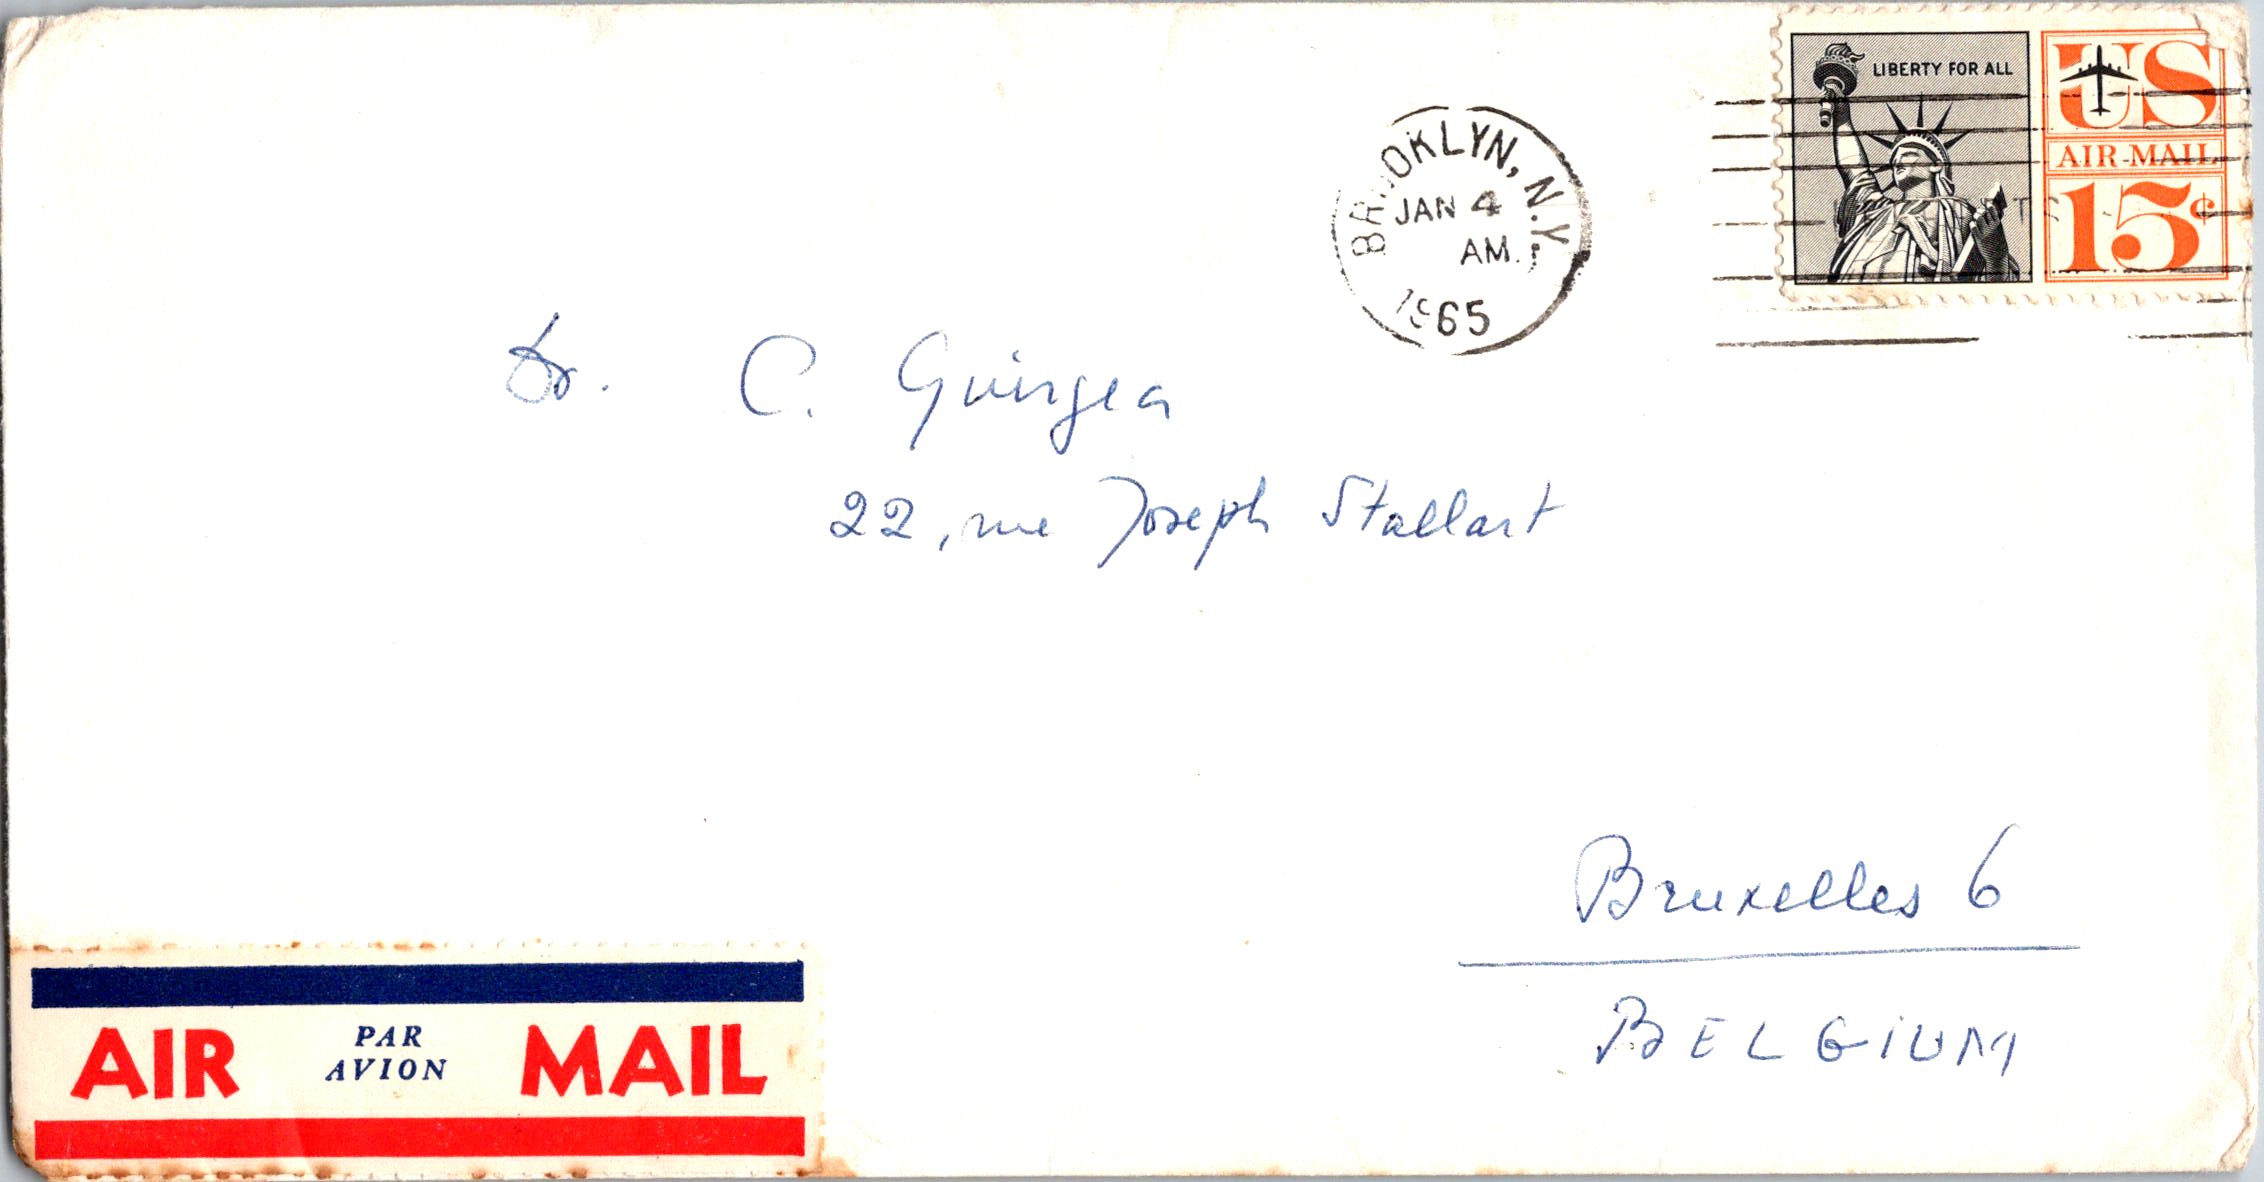 LIBERTY FOR ALL
US
AIR-MAIL
15¢
BROOKLYN, N.Y.
JAN 4
AM
1965
Dr. C. Giurgea
22, rue Joseph Stallart
Bruxelles 6
BELGIUM
AIR PAR AVION MAIL